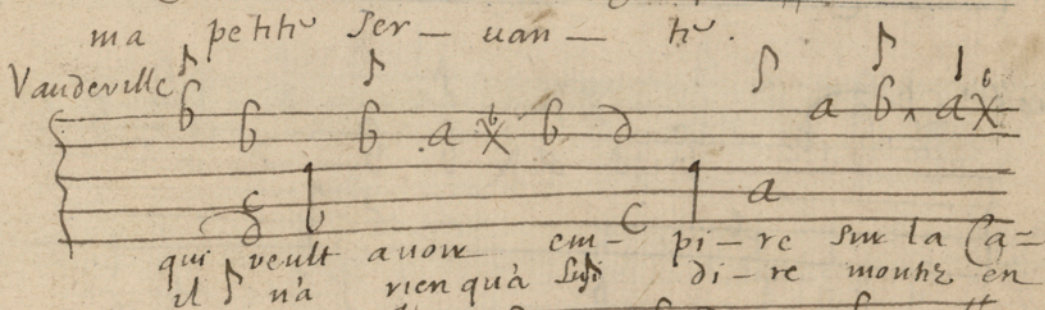 ma petitte Ser – uan – te .
Vaudeville
b b b a b b d a b a b
c d c a
qui veult auoir em- pi – re sur la Ca=
il n'a rien qu'a di – re en